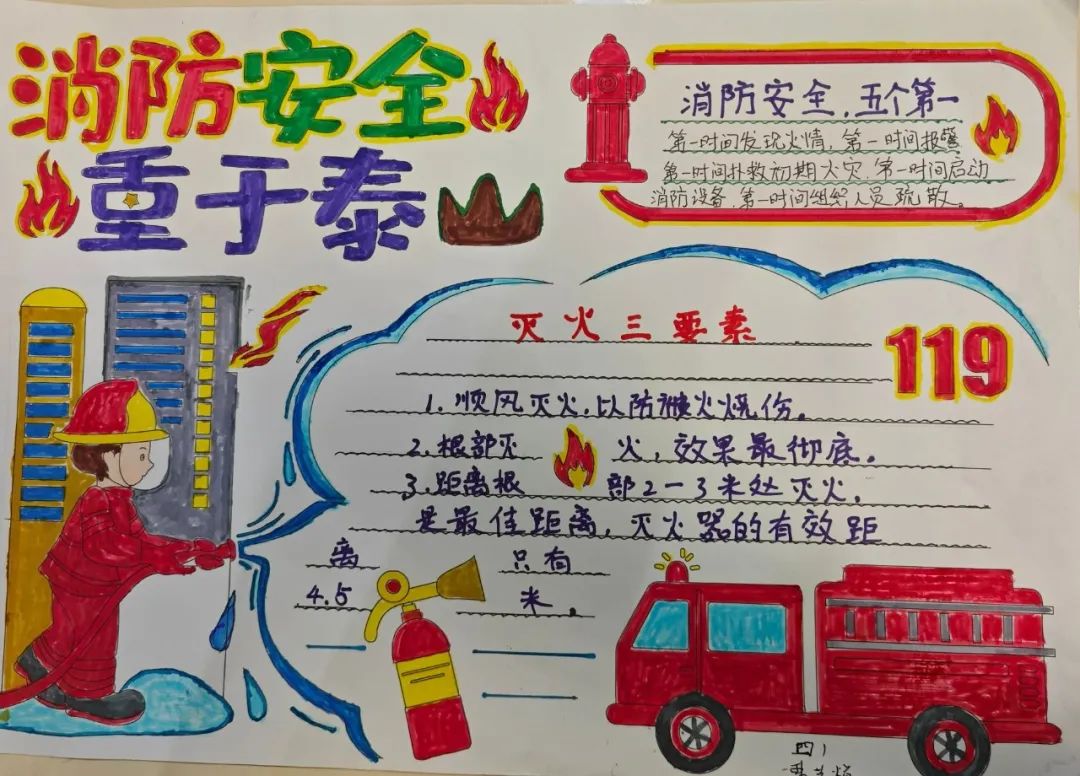 消防安全
重于泰
消防安全，五个第一
第一时间发现火情，第一时间报警
第一时间扑救初期火灾，第一时间启动
消防设备，第一时间组织人员疏散。
灭火三要素
119
1.顺风灭火，以防被火烧伤。
2.根部灭 火，效果最彻底。
3.距离根 部2-3米处灭火，
是最佳距离，灭火器的有效距
离 只有
4.5 米。
四1